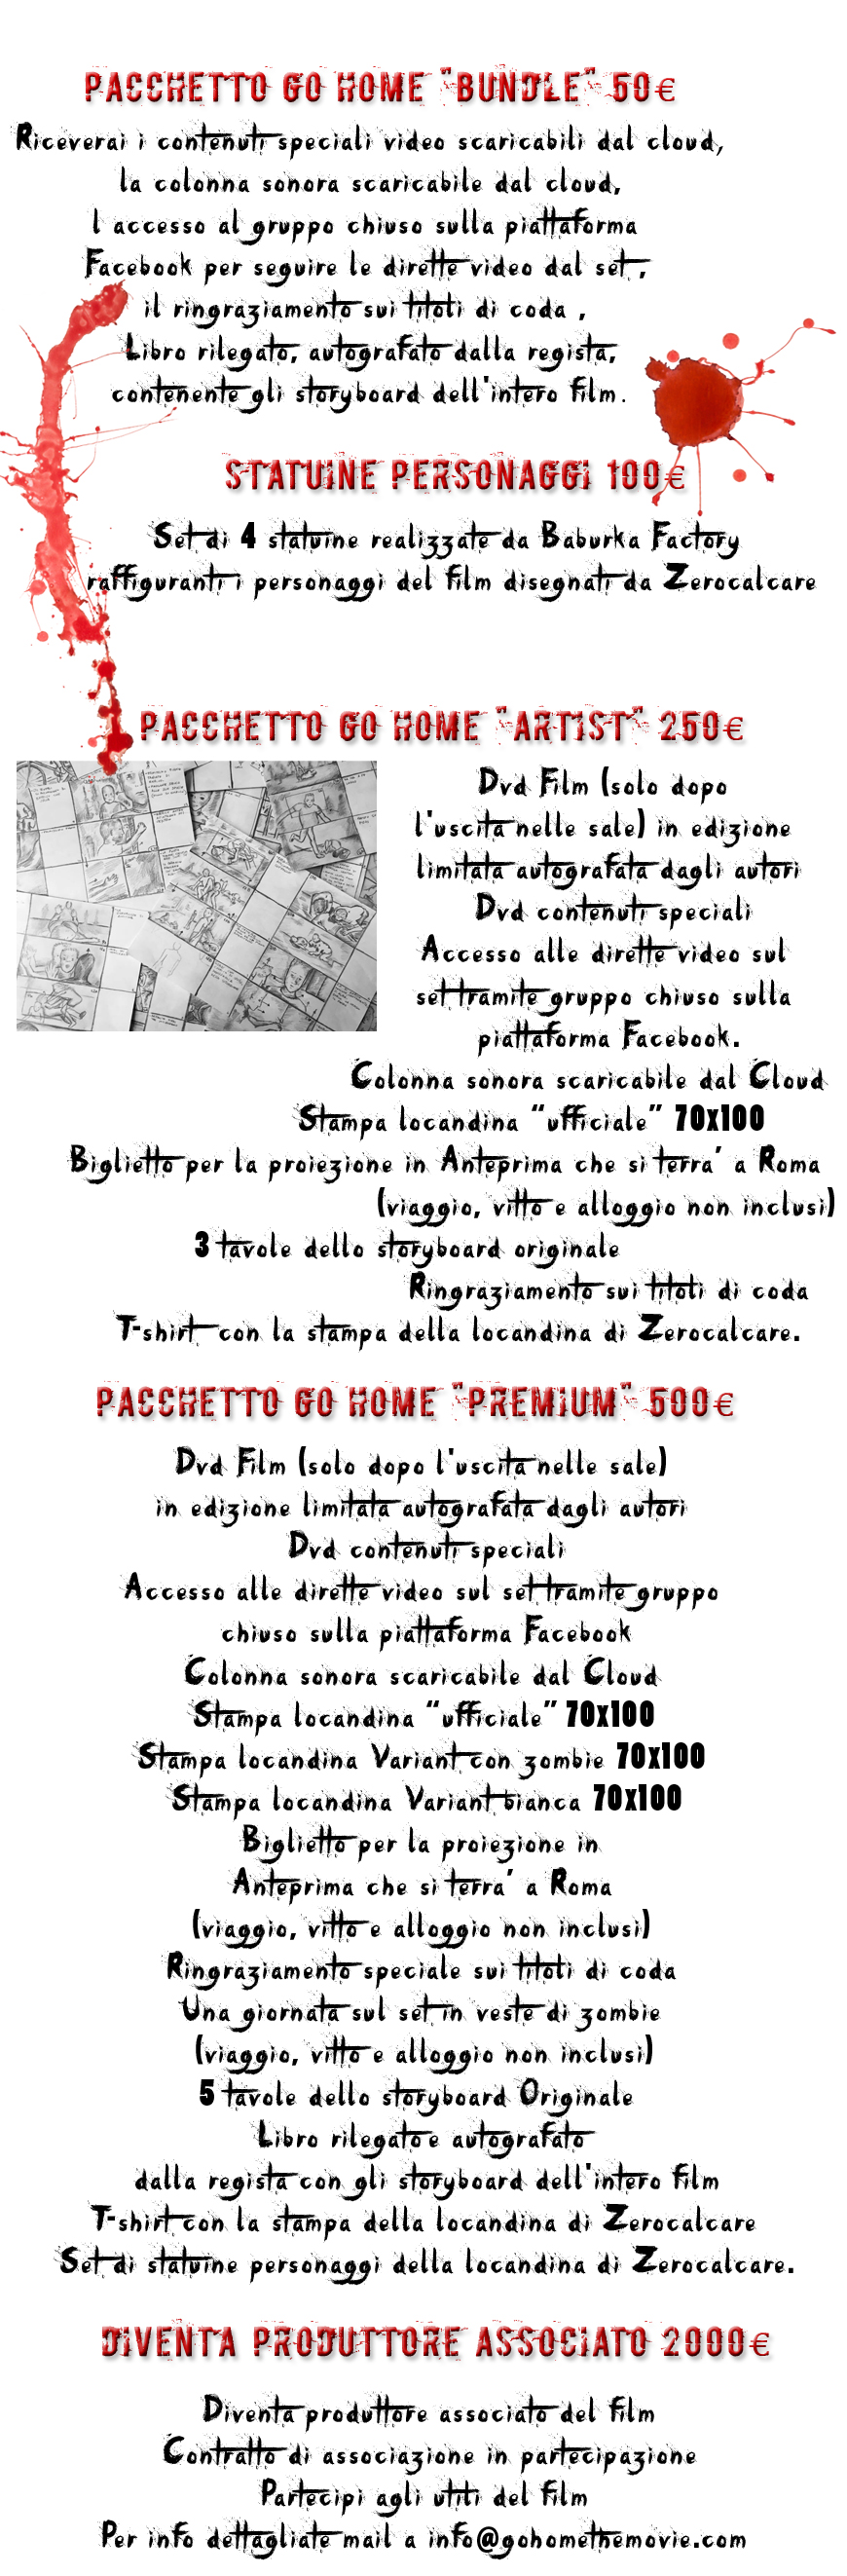 PACCHETTO GO HOME "BUNDLE" 50€
Riceverai i contenuti speciali video scaricabili dal cloud,
la colonna sonora scaricabile dal cloud,
l accesso al gruppo chiuso sulla piattaforma
Facebook per seguire le dirette video dal set ,
il ringraziamento sui titoli di coda ,
Libro rilegato, autografato dalla regista,
contenente gli storyboard dell'intero film.
STATUINE PERSONAGGI 100€
Set di 4 statuine realizzate da Baburka Factory
raffiguranti i personaggi del film disegnati da Zerocalcare
PACCHETTO GO HOME "ARTIST" 250€
Dvd Film (solo dopo
l'uscita nelle sale) in edizione
limitata autografata dagli autori
Dvd contenuti speciali
Accesso alle dirette video sul
set tramite gruppo chiuso sulla
piattaforma Facebook.
Colonna sonora scaricabile dal Cloud
Stampa locandina “ufficiale” 70x100
Biglietto per la proiezione in Anteprima che si terra’ a Roma
(viaggio, vitto e alloggio non inclusi)
3 tavole dello storyboard originale
Ringraziamento sui titoli di coda
T-shirt con la stampa della locandina di Zerocalcare.
PACCHETTO GO HOME "PREMIUM" 500€
Dvd Film (solo dopo l'uscita nelle sale)
in edizione limitata autografata dagli autori
Dvd contenuti speciali
Accesso alle dirette video sul set tramite gruppo
chiuso sulla piattaforma Facebook
Colonna sonora scaricabile dal Cloud
Stampa locandina “ufficiale” 70x100
Stampa locandina Variant con zombie 70x100
Stampa locandina Variant bianca 70x100
Biglietto per la proiezione in
Anteprima che si terra’ a Roma
(viaggio, vitto e alloggio non inclusi)
Ringraziamento speciale sui titoli di coda
Una giornata sul set in veste di zombie
(viaggio, vitto e alloggio non inclusi)
5 tavole dello storyboard Originale
Libro rilegato e autografato
dalla regista con gli storyboard dell'intero film
T-shirt con la stampa della locandina di Zerocalcare
Set di statuine personaggi della locandina di Zerocalcare.
DIVENTA PRODUTTORE ASSOCIATO 2000€
Diventa produttore associato del film
Contratto di associazione in partecipazione
Partecipi agli utili del film
Per info dettagliate mail a info@gohomethemovie.com